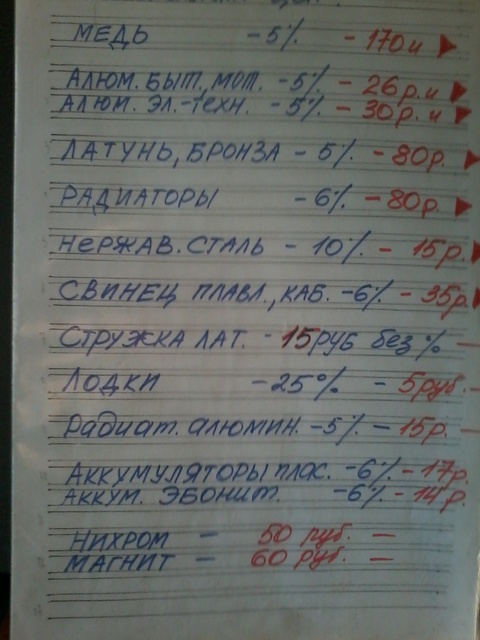 МЕДЬ -5% -170 и
АЛЮМ. БЫТ., МОТ. -5% - 26р. и
АЛЮМ. ЭЛ.-ТЕХН. -5% - 30р. и
ЛАТУНЬ, БРОНЗА - 5% - 80р.
РАДИАТОРЫ -6% - 80р.
НЕРЖАВ. СТАЛЬ - 10% - 15р.
СВИНЕЦ ПЛАВЛ., КАБ. -6% - 35р.
СТРУЖКА ЛАТ. - 15руб без % -
ЛОДКИ -25% - 5руб. -
Радиат. алюмин. -5% - 15р. -
АККУМУЛЯТОРЫ ПЛАС. -6% - 17р.
АККУМ. ЭБОНИТ. -6% - 14р.
НИХРОМ - 50 руб. -
МАГНИТ - 60 руб. -